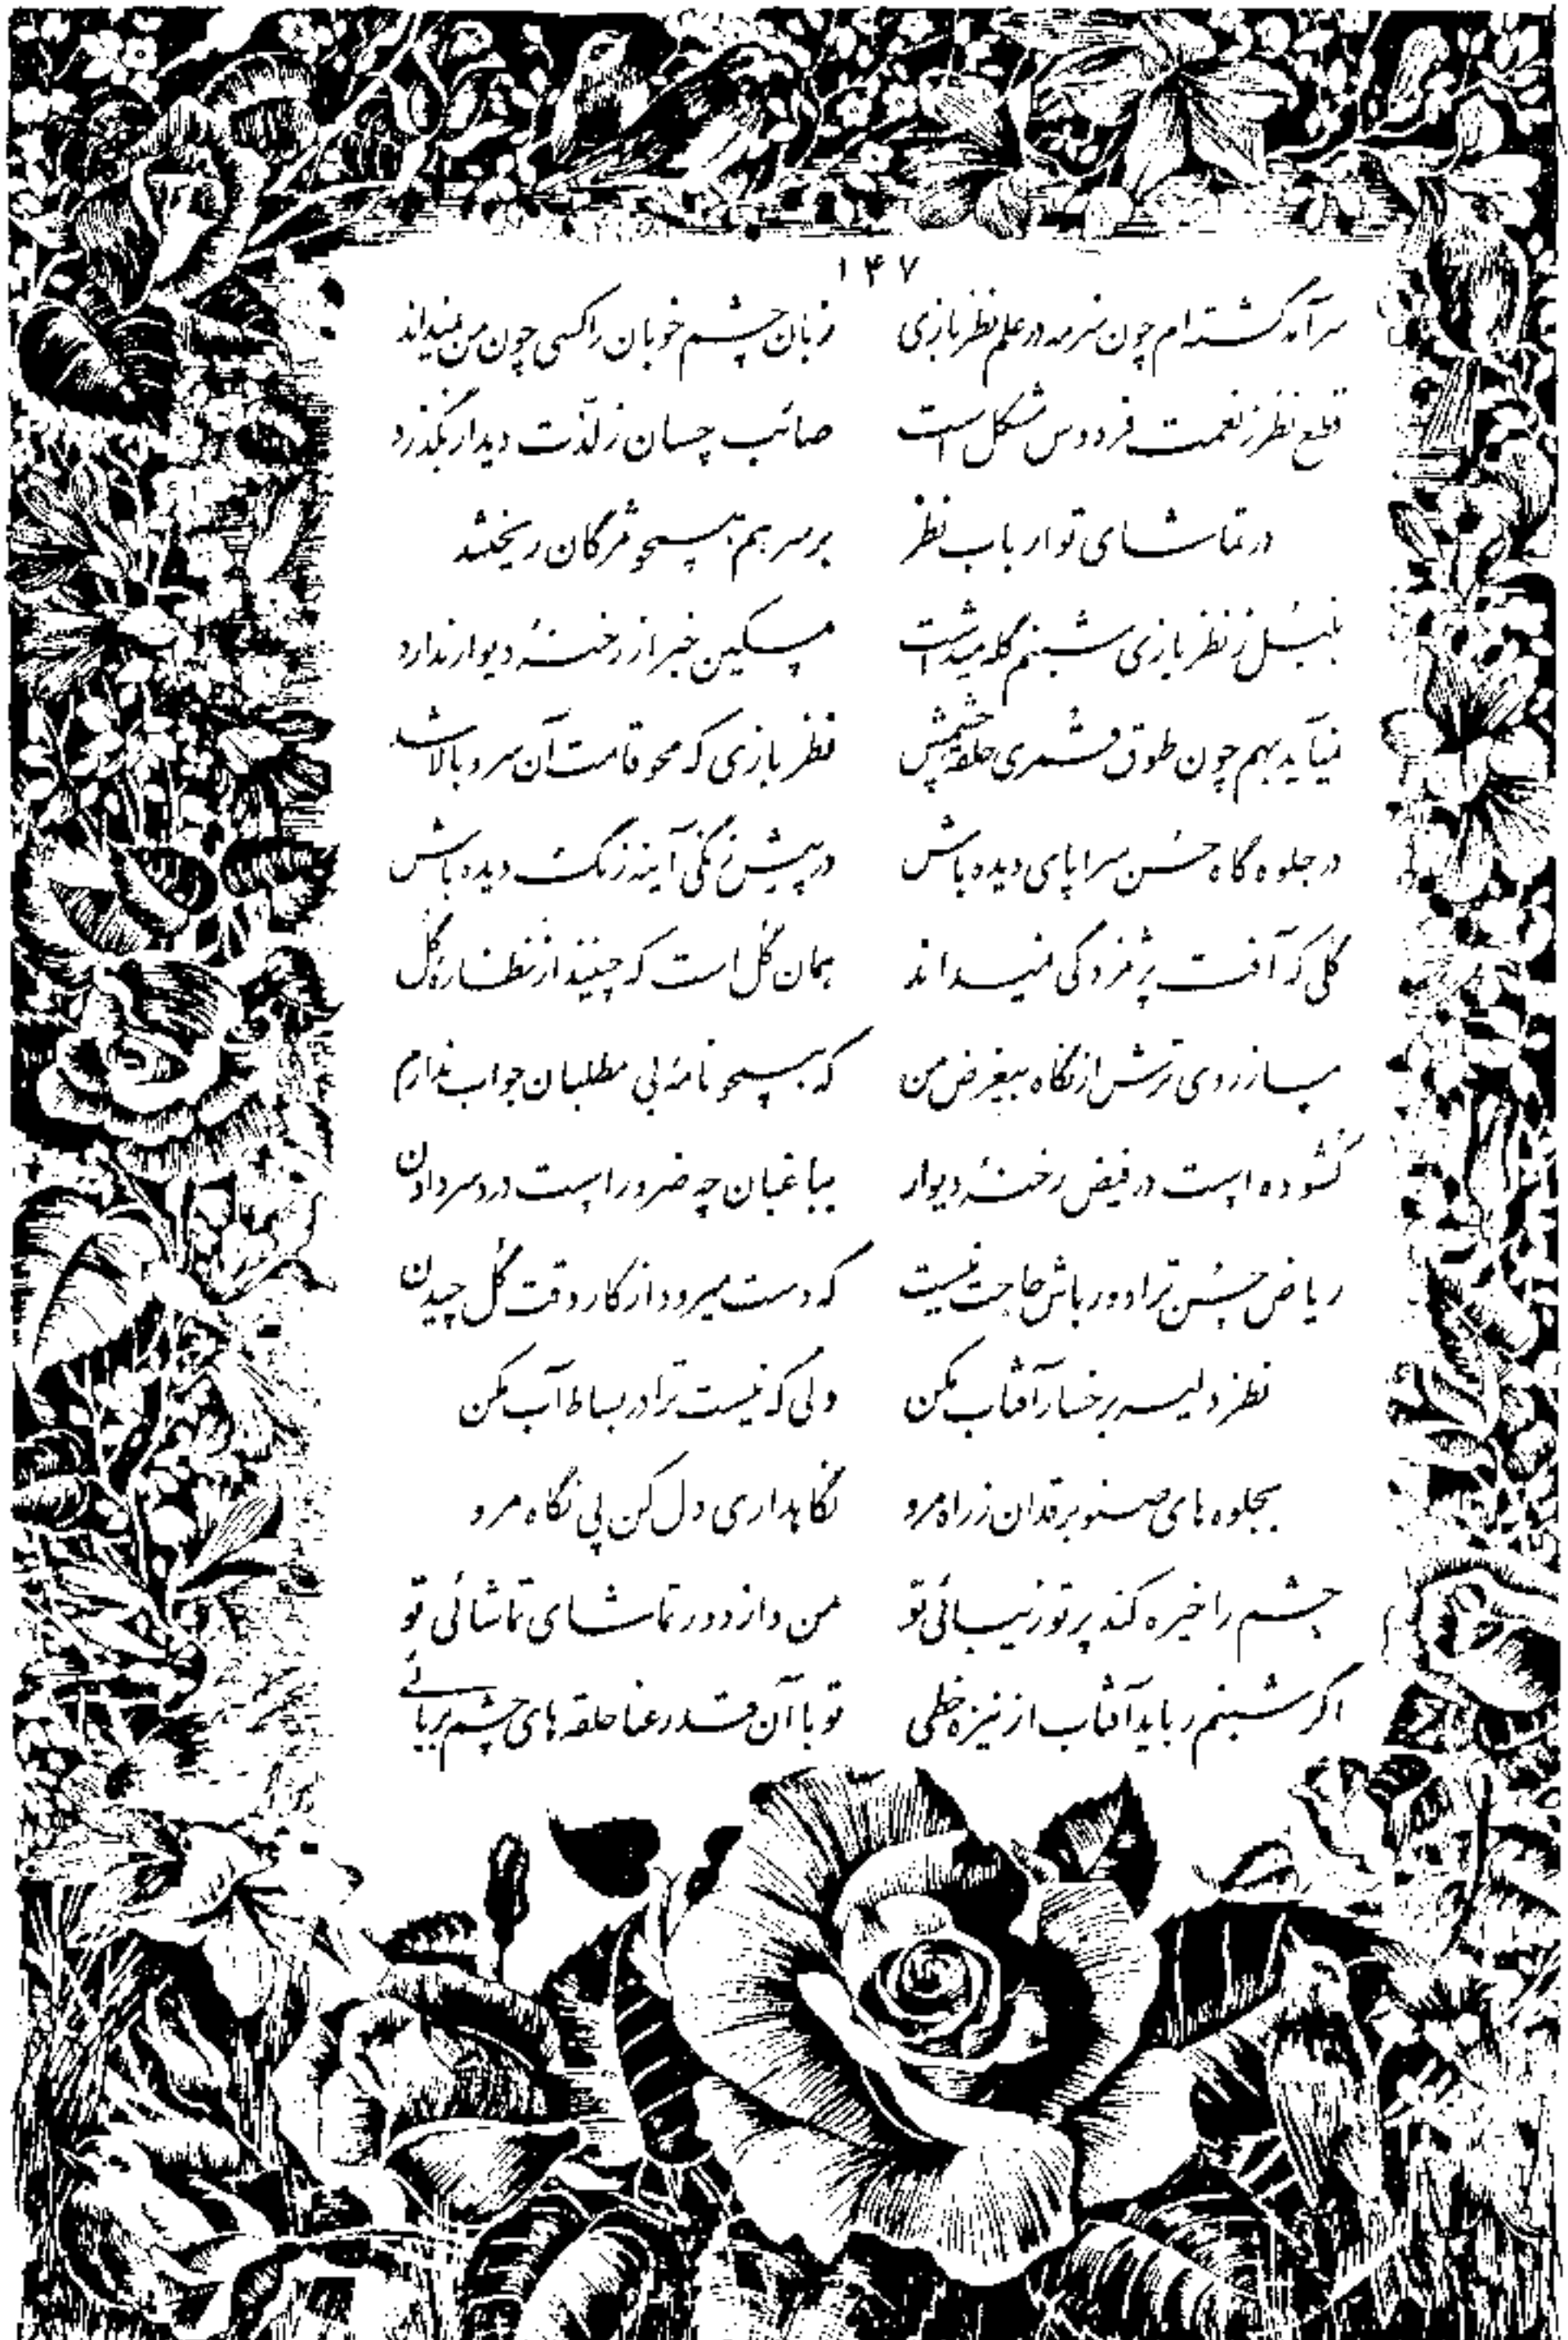 ۱۴۷
سرآمد گشته‌ام چون سرمه در علم نظربازی زبان چشم خوبان را کسی چون من نمیداند
قطع نظر ز نعمت فردوس مشکل است صائب چسان ز لذت دیدار بگذرد
در تماشای تو ارباب نظر بر سر هم همچو مژگان ریختند
بلبل ز نظربازی شبنم گله میداشت مسکین خبر از رخنهٔ دیوار ندارد
نمیآید بهم چون طوق قمری حلقهٔ چشمش نظربازی که محو قامت آن سرو بالا شد
در جلوه گاه حسن سراپای دیده باش در پیش زنگی آینه زنگ دیده باش
گلی که آفت پژمردگی نمیداند همان گل است که چینند از نظارهٔ گل
مساز روی ترش از نگاه بیغرض من که همچو نامهٔ بی مطلبان جواب ندارم
گشوده است در فیض رخنهٔ دیوار بباغبان چه ضرور است دردسر دادن
ریاض حسن ترا دورباش حاجت نیست که دست میرود از کار وقت گل چیدن
نظر دلیر برخسار آفتاب مکن دلی که نیست ترا در بساط آب مکن
بجلوه های صنوبر قدان ز راه مرو نگاهداری دل کن پی نگاه مرو
چشم را خیره کند پرتو زیبائی تو من و از دور تماشای تماشائی تو
اگر شبنم رباید آفتاب از نیزه خطی تو با آن قد رعنا حلقه های چشم بربائے